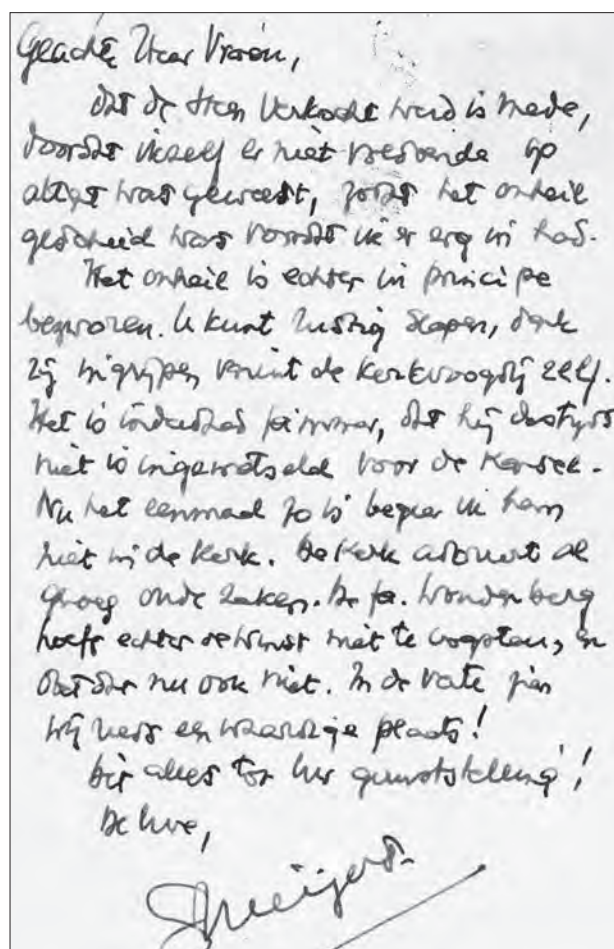 Geachte Heer Vroon,
Dat de steen verkocht werd is mede,
doordat ikzelf er niet voldoende op
attent was geweest, zodat het onheil
geschied was voordat ik er erg in had.
Het onheil is echter in principe
bezworen. U kunt rustig slapen, dank
zij ingrijpen vanuit de kerkvoogdij zelf.
Het is inderdaad jammer, dat hij destijds
niet is ingewisseld voor de
Nu het eenmaal zo is begeer ik hem
niet in de Kerk. De Kerk al
genoeg oude zaken. De fa. Wonderberg
heeft echter de winst niet te, en
doet dat nu ook niet. In de
wij weer een waardige plaats!
Dit alles tot Uw geruststelling!
De Uwe,
Meijers